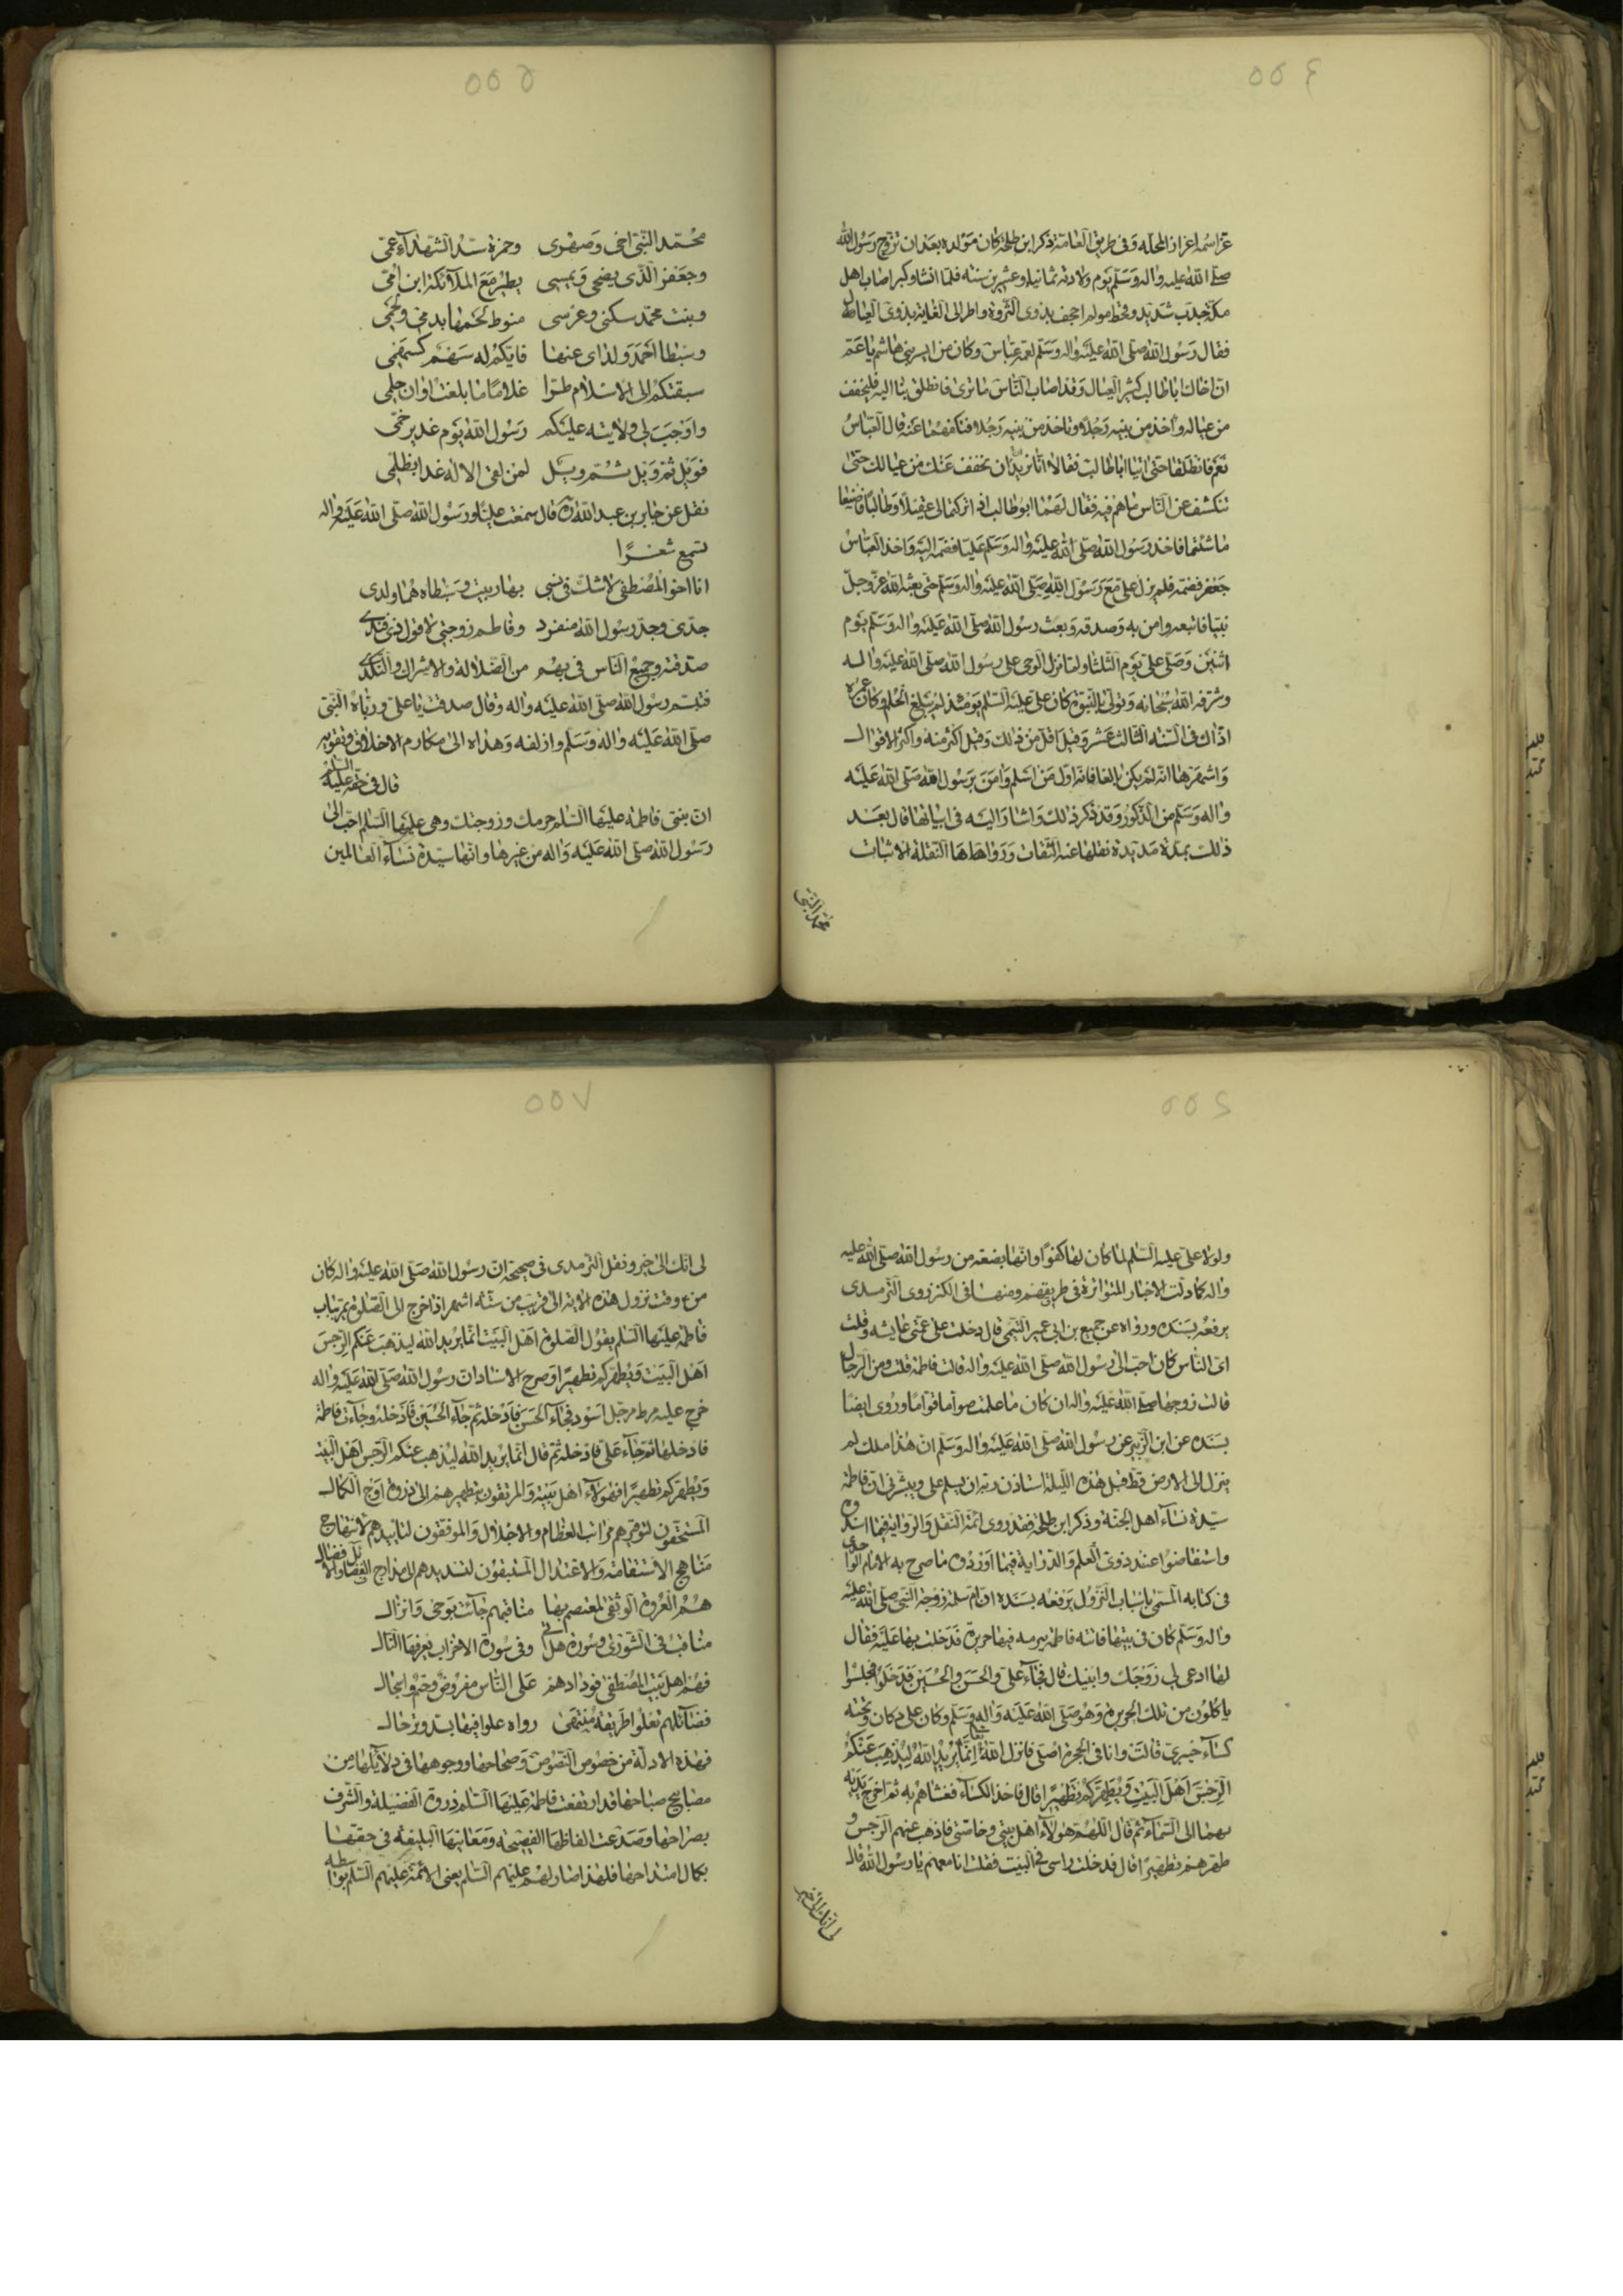 ٥٥٤
عز اسمه اعزاز المحله وفى طريق العامة ذكر ابن طلحة كان مولده بعد ان تزوج رسول الله
صلى الله عليه واله وسلم يوم ولادته ثمانية وعشرين سنة فلما انشا وكبر اصاب اهل
مكة جدب شديد وقحط مولم اجحف بذوى الثروة واضر الى الغاية بذوى العيال
فقال رسول الله صلى الله عليه واله وسلم لعمه عباس وكان من ايسر بنى هاشم يا عم
ان اخاك اباطالب كثير العيال وقد اصاب الناس ما ترى فانطلق بنا اليه فليخفف
من عياله واخذ من بنيه رجلا وتاخذ من بنيه رجلا فنكفهما عنه قال العباس
نعم فانطلقا حتى اتيا اباطالب فقالا انا نريد ان نخفف عنك من عيالك حتى
تنكشف عن الناس ما هم فيه فقال لهما ابوطالب اذ اتركتما لى عقيلا وطالبا فاضيعا
ما شئتما فاخذ رسول الله صلى الله عليه واله وسلم عليا فضمه اليه واخذ العباس
جعفر فضمه فلم يزل على مع رسول الله صلى الله عليه واله وسلم حتى بعثه الله عز وجل
نبيا فاتبعه وامن به وصدقه وبعث رسول الله صلى الله عليه واله وسلم يوم
اثنين وصلى على يوم الثلثا ولما نزل الوحى على رسول الله صلى الله عليه واله
وشرفه الله سبحانه وتولى بالنبوة كان على عليه السلم يومئذ لم يبلغ الحلم وكان عمره
اذ ذاك فى السنه الثالث عشر وقيل اقل من ذلك وقيل اكثر منه واكثر الاقوال
واشهرها انه لم يكن بالغا فانه اول من اسلم وامن برسول الله صلى الله عليه
واله وسلم من الذكور وقد ذكر ذلك واشار اليه فى ابياتها قال بعد
ذلك بمدة مديدة نقلها عنه الثقات ورواها النقلة الاثبات
محمد النبى
٥٥٥
محمد النبى اخى وصهرى وحمزة سيد الشهداء عمى
وجعفر الذى يضحى ويمسى يطير مع الملآئكة ابن امى
وبنت محمد سكنى وعرسى منوط لحمها بدمى ولحمى
وسبطا احمد ولداى عنها فايكم له سهم كسهمى
سبقتكم الى الاسلام طرا غلاما ما بلغت اوان حلمى
واوجب لى ولايته عليكم رسول الله يوم غدير خمى
فويل ثم ويل ثم ويل لمن لقى الاله غدا بظلمى
نقل عن جابر بن عبدالله قال سمعت عليا ورسول الله صلى الله عليه واله
تسمع شعرا
انا اخو المصطفى لاشك فى نسبى بها ربيت وسبطاه هما ولدى
جدى وجد رسول الله منفرد وفاطم زوجتى لا قول ذى فندى
صدقته وجميع الناس فى بهم من الضلالة والاشراك والنكدى
فتبسم رسول الله صلى الله عليه واله وقال صدقت يا على ورباه النبى
صلى الله عليه واله وسلم وازلفه وهداه الى مكارم الاخلاق وتقويه
قال فى حقه عليه السلم
ان بنتى فاطمة عليها السلم حرمك وزوجتك وهى عليها السلم احب الى
رسول الله صلى الله عليه واله من غيرها وانها سيدة نساء العالمين
٥٥٦
ولولا على عليه السلم لما كان لها كفوا وانها بضعة من رسول الله صلى الله عليه
واله كما دلت الاخبار المتواترة فى طريقهم ومنها فى الكنز روى الترمدى
يرفعه بسنده ورواه عن جميع بن ابى عمير التيمى قال دخلت على عمتى عايشه وقلت
اى الناس كان احب الى رسول الله صلى الله عليه واله قالت فاطمة قلت ومن الرجال
قالت زوجها صلى الله عليه واله ان كان ما علمت صواما قواما وروى ايضا
بسنده عن ابن الزبير عن رسول الله صلى الله عليه واله وسلم ان هذا ملك لم
ينزل الى الارض قط قبل هذه الليلة استاذن ربه ان يسلم على ويبشرنى ان فاطمة
سيدة نساء اهل الجنة وذكر ابن طلحة فقد روى ائمة النقل والرواية فيما اسندوه
واستفاضوا عند ذوى العلم والدراية فيما اوردوه ما صرح به الامام الواحدى
فى كتابه المسمى باسباب النزول يرفعه بسنده ان ام سلمة زوجة النبى صلى الله عليه
واله وسلم كان فى بيتها فاتته فاطمة ببرمه فيها حريرة فدخلت بها عليه فقال
لها ادعى لى زوجك وابنيك قال فجآء على والحسن والحسين فدخلوا فجلسوا
ياكلون من تلك الحريرة وهو صلى الله عليه واله وسلم وكان على دكان وتحته
كسآء خيبرى قالت وانا فى الحجرة اصلى فانزل الله تعالى انما يريد الله ليذهب عنكم
الرجس اهل البيت ويطهركم تطهيرا قال فاخذ الكسآء فغشاهم به ثم اخرج يديه
بهما الى السمآء ثم قال اللهم هولآء اهل بيتى وخاصتى فاذهب عنهم الرجس و
طهرهم تطهيرا قال فدخلت راسى فى البيت فقلت انا معهم يا رسول الله قال
لى انك الى خير
٥٥٧
لى انك الى خير ونقل الترمدى فى صحيحه ان رسول الله صلى الله عليه واله كان
من وقت نزول هذه الاية الى قريب من ستة اشهر اذا خرج الى الصلوة يمر بباب
فاطمة عليها السلم يقول الصلوة اهل البيت انما يريد الله ليذهب عنكم الرجس
اهل البيت ويطهركم تطهيرا وصرح الاستاد ان رسول الله صلى الله عليه واله
خرج عليه مرط مرجل اسود فجآء الحسن فادخله ثم جآء الحسين فادخله وجاءت فاطمة
فادخلها ثم جآء على فادخله ثم قال انما يريد الله ليذهب عنكم الرجس اهل البيت
ويطهركم تطهيرا فهولآء اهل بيته والمرتقون بتطهيرهم الى ذروة اوج الكمال
المستحقون لتوقيرهم مراتب العظام والاجلال والموفقون لتاييدهم لانتهاج
مناهج الاستقامة والاعتدال المستبقون لتسديدهم الى مدارج الفضايل والافضال
هم العروة الوثقى لمعتصم بها مناقبهم جآئت بوحى وانزال
مناقب فى الشورى وسورة هل اتى وفى سورة الاحزاب يعرفها التال
فهم اهل بيت المصطفى فودادهم على الناس مفروض وحكم واسجال
فضآئلهم تعلوا طريقة منتهى رواه علوا فيها بشد وترحال
فهذه الادلة من خصوص النصوص وصحاحها ووجوهها فى دلآيلها من
مصابيح صباحها قد ارتفعت فاطمة عليها السلم ذروة الفضيلة والشرف
بصراحها وصدعت الفاظها الفصيحة ومعانيها البليغة فى حقها
بكمال امتداحها فلهذا صار لهم عليهم السلم يعنى الائمة عليهم السلم بواسطه